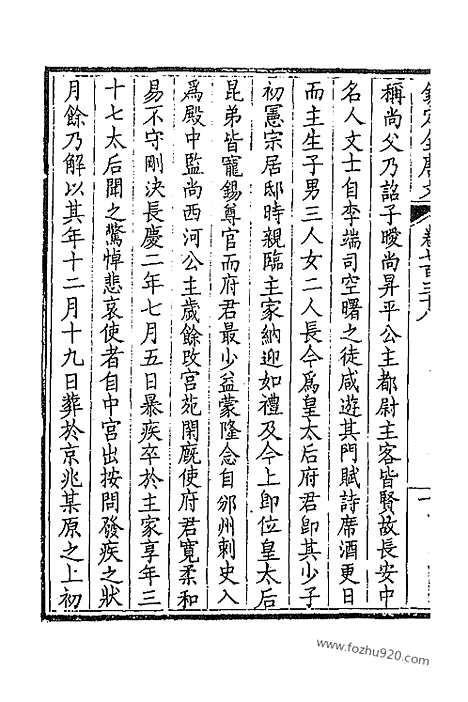 稱尚父乃詔子曖尚昇平公主都尉主客皆賢故長安中
名人文士自李端司空曙之徒咸遊其門賦詩席酒更日
而主生子男三人女二人長今爲皇太后府君卽其少子
初憲宗居邸時親臨主家納迎如禮及今上卽位皇太后
昆弟皆寵錫尊官而府君最少益蒙隆念自邠州刺史入
爲殿中監尚西河公主歲餘改宮苑閑廐使府君寬柔和
易不守剛決長慶二年七月五日暴疾卒於主家享年三
十七太后聞之驚悼悲哀使者自中宮出按問發疾之狀
月餘乃解以其年十二月十九日葬於京兆某原之上初
www.fozhu920.com